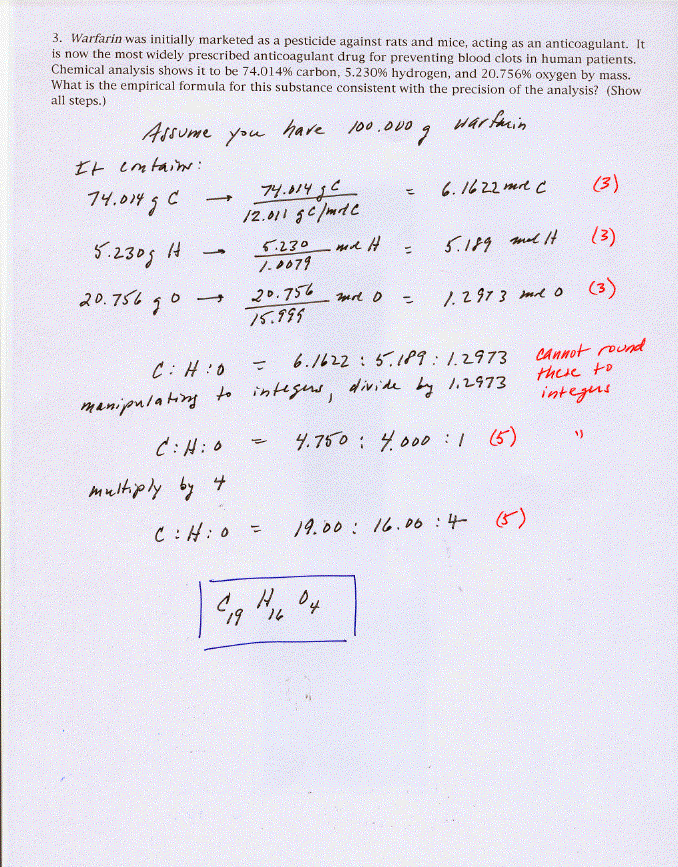 3. Warfarin was initially marketed as a pesticide against rats and mice, acting as an anticoagulant. It
is now the most widely prescribed anticoagulant drug for preventing blood clots in human patients.
Chemical analysis shows it to be 74.014% carbon, 5.230% hydrogen, and 20.756% oxygen by mass.
What is the empirical formula for this substance consistent with the precision of the analysis? (Show
all steps.)
Assume you have 100.000 g warfarin
It contains:
74.014 g C → 74.014 g C / 12.011 g C/mol C = 6.1622 mol C (3)
5.230 g H → 5.230 / 1.0079 mol H = 5.189 mol H (3)
20.756 g O → 20.756 / 15.999 mol O = 1.2973 mol O (3)
C : H : O = 6.1622 : 5.189 : 1.2973 cannot round these to integers
manipulating to integers, divide by 1.2973
C : H : O = 4.750 : 4.000 : 1 (5) "
multiply by 4
C : H : O = 19.00 : 16.00 : 4 (5)
C19 H16 O4